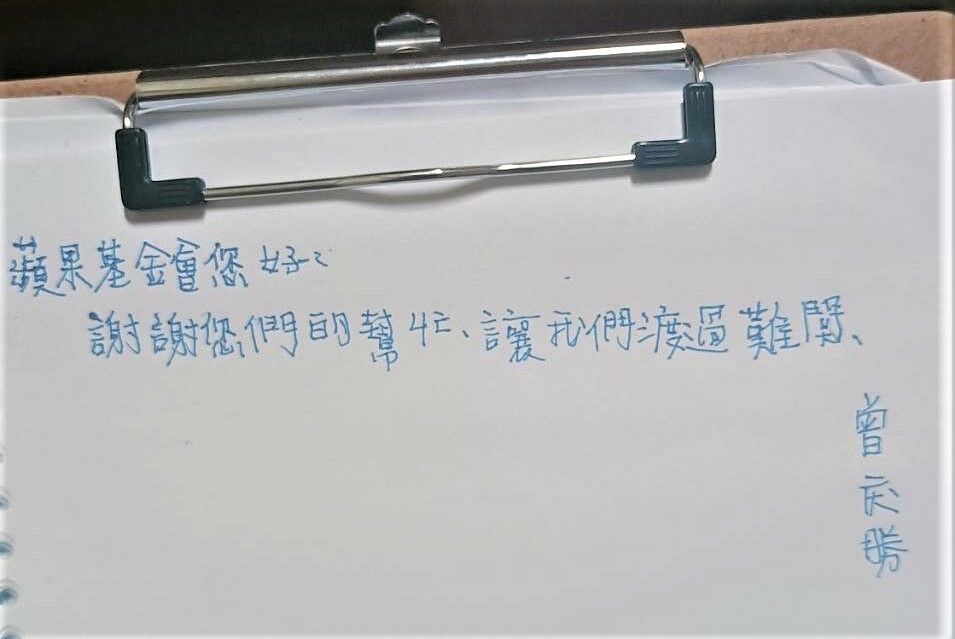 蘋果基金會您好:
謝謝您們的幫忙、讓我們渡過難関、
曾庆勝